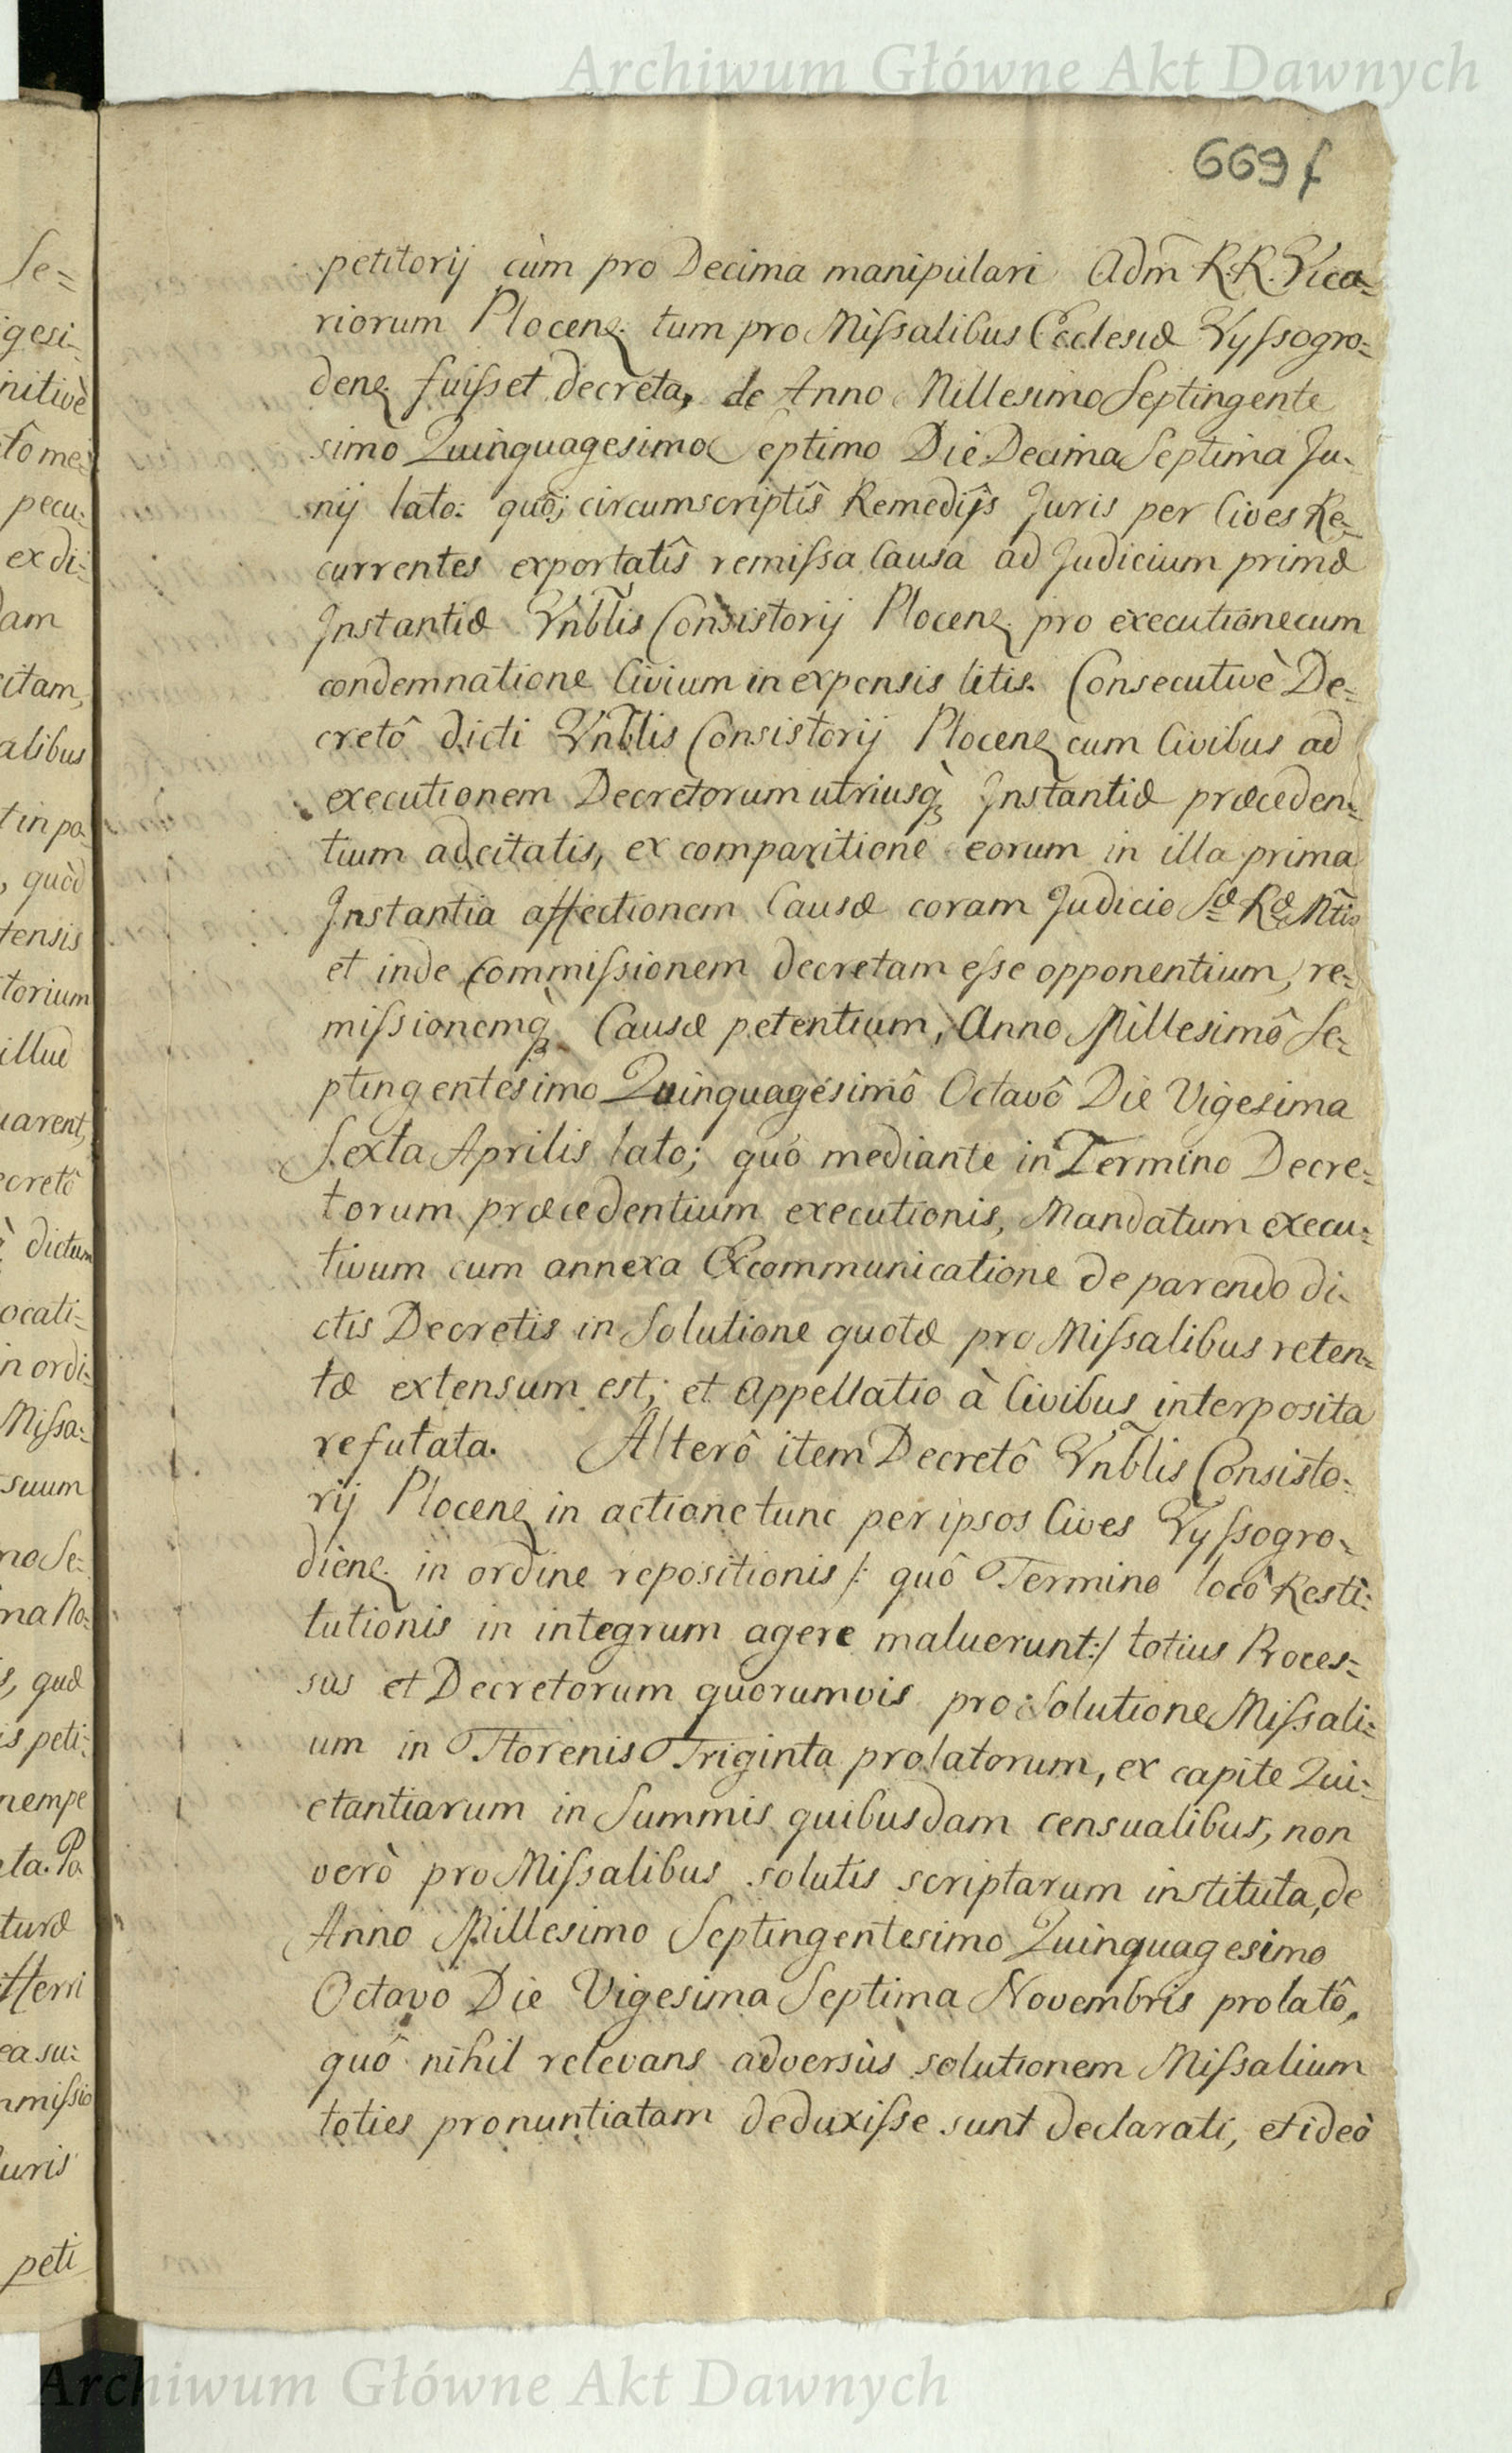 Archiwum Główne Akt Dawnych
669 f
petitorij cùm pro Decima manipulari Adm̃ R.R. Vica=
riorum Plocenę. tum pro Missalibus Ecclesiæ Vyssogro=
denę. fuisset decreta, de Anno Millesimo Septingente
simo Quinquagesimo Septimo Die Decima Septima Ju=
nij lato: quô; circumscriptîs Remedijs Juris per Cives Re=
currentes exportatîs remissa Causa ad Judicium primæ
Instantiæ Vnb̃lis Consistorij Plocenę. pro executione cum
condemnatione Civium in expensis litis. Consecutivè De=
cretô dicti Vnb̃lis Consistorij Plocenę cum Civibus ad
executionem Decretorum utriusq̀ Instantiæ præceden=
tium adcitatis, ex comparitione eorum in illa prima
Instantia affectionem Causæ coram Judicio Sæ Ræ Mtis
et inde Commissionem decretam esse opponentium, re=
missionemq̀ Causæ petentium, Anno Millesimô Se=
ptingentesimo Quinquagesimô Octavô Die Vigesima
Sexta Aprilis lato; quô mediante in Termino Decre=
torum præcedentium executionis, Mandatum execu=
tivum cum annexa Excommunicatione de parendo di=
ctis Decretis in Solutione quotæ pro Missalibus reten=
tæ extensum est; et Appellatio à Civibus interposita
refutata. Alterô item Decretô Vnb̃lis Consisto=
rij Plocenę in actione tunc per ipsos Cives Vyssogro=
dienę. in ordine repositionis /: quô Termino locô Resti=
tutionis in integrum agere maluerunt:/ totius Proces=
sûs et Decretorum quorumvis pro Solutione Missali=
um in Florenis Triginta prolatorum, ex capite Qui=
etantiarum in Summis quibusdam censualibus, non
verò pro Missalibus solutis scriptarum instituta, de
Anno Millesimo Septingentesimo Quinquagesimo
Octavo Die Vigesima Septima Novembris prolatô,
quô nihil relevans adversùs solutionem Missalium
toties pronuntiatam deduxisse sunt declarati, et ideò
Se=
igesi=
nitivè
tô me=
pecu=
ex di=
dam
citam,
alibus
t in po=
, quòd
tensis
torium
illud
uarent,
ecretô
dictum
ocati=
n ordi=
Missa=
suum
no Se=
ma No=
s, quæ
is peti=
nempe
ta. Po
turæ
fferri
ea su=
mmissio
Juris
peti
Archiwum Główne Akt Dawnych